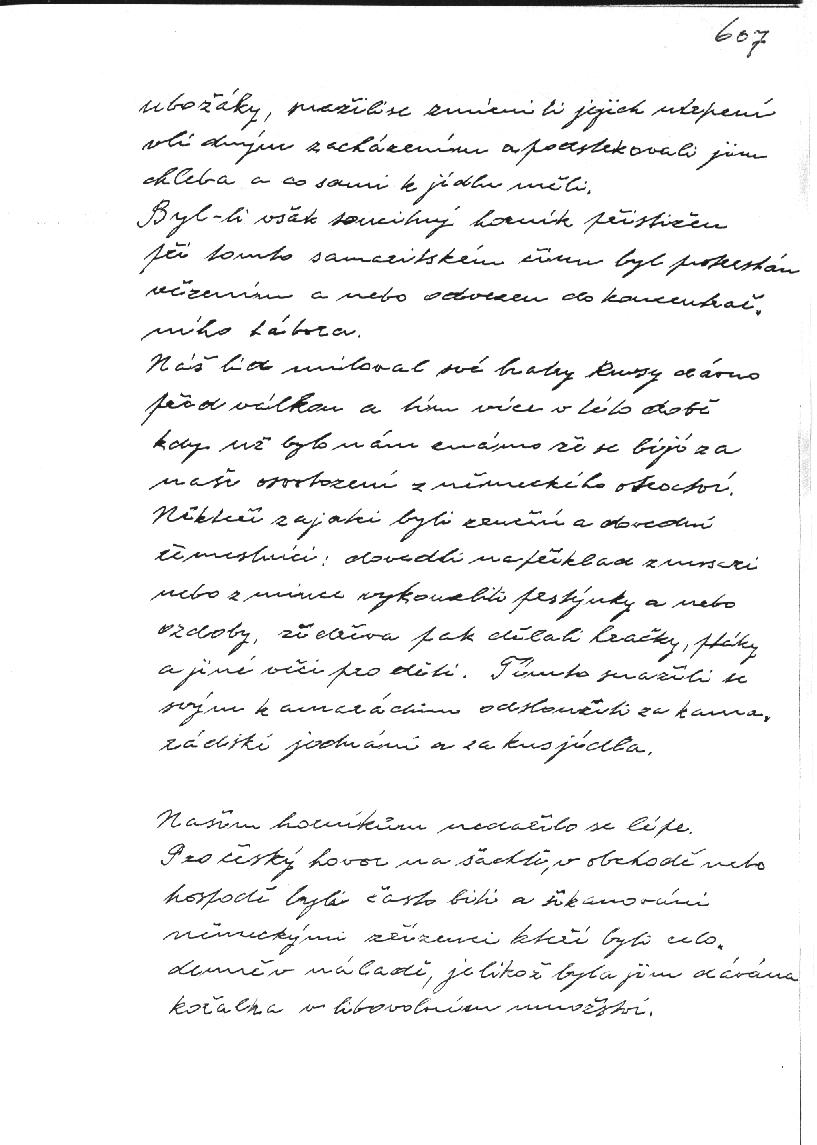 607
ubožáky, snažili se zmírniti jejich utrpení
vlídným zacházením a podstrkovali jim
chleba a co sami k jídlu měli.
Byl-li však soucitný horník přistižen
při tomto samaritském činu byl potrestán
vězením a nebo odvezen do koncentrač.
ního tábora.
Náš lid miloval své bratry Rusy dávno
před válkou a tím více v této době
kdy už bylo nám známo že se bijí za
naše osvobození z německého otroctví.
Někteří zajatci byli zruční a dovední
řemeslníci; dovedli na příklad z mosazi
nebo z mince vykouzliti prstýnky a nebo
ozdoby, ze dřeva pak dělali hračky, ptáky
a jiné věci pro děti. Tímto snažili se
svým kamarádům odsloužiti za kama.
rádské jednání a za kus jídla.
Našim horníkům nedařilo se lépe.
Pro český hovor na šachtě, v obchodě nebo
hospodě byli často biti a šikanováni
německými zřízenci kteří byli celo.
denně v náladě, jelikož byla jim dávána
kořalka v libovolném množství.